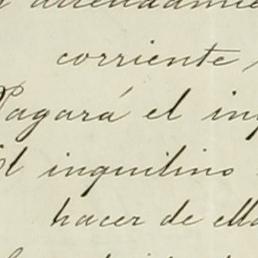 arrendamie
corriente
Pagará el inq
El inquilino
hacer de ella